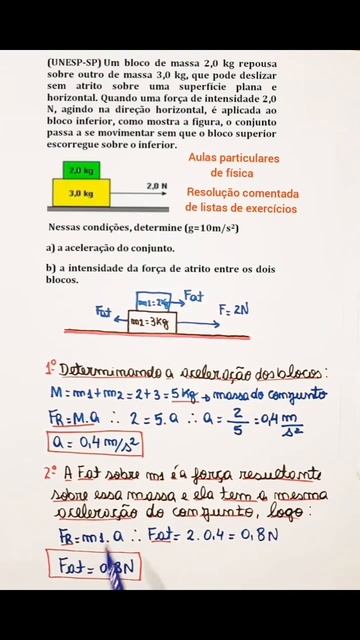 (UNESP-SP) Um bloco de massa 2,0 kg repousa
sobre outro de massa 3,0 kg, que pode deslizar
sem atrito sobre uma superfície plana e
horizontal. Quando uma força de intensidade 2,0
N, agindo na direção horizontal, é aplicada ao
bloco inferior, como mostra a figura, o conjunto
passa a se movimentar sem que o bloco superior
escorregue sobre o inferior.
2,0 kg
3,0 kg
2,0 N
Aulas particulares
de física
Resolução comentada
de listas de exercícios
Nessas condições, determine (g=10m/s²)
a) a aceleração do conjunto.
b) a intensidade da força de atrito entre os dois
blocos.
m1=2kg
Fat
Fat
m2=3kg
F=2N
1º Determinando a aceleração dos blocos:
M=m1+m2=2+3=5kg → massa do conjunto
FR=M.a ∴ 2=5.a ∴ a=2/5=0,4 m/s²
a=0,4m/s²
2º A Fat sobre m1 é a força resultante
sobre essa massa e ela tem a mesma
aceleração do conjunto, logo:
FR=m1.a ∴ Fat=2.0,4=0,8N
Fat=0,8N